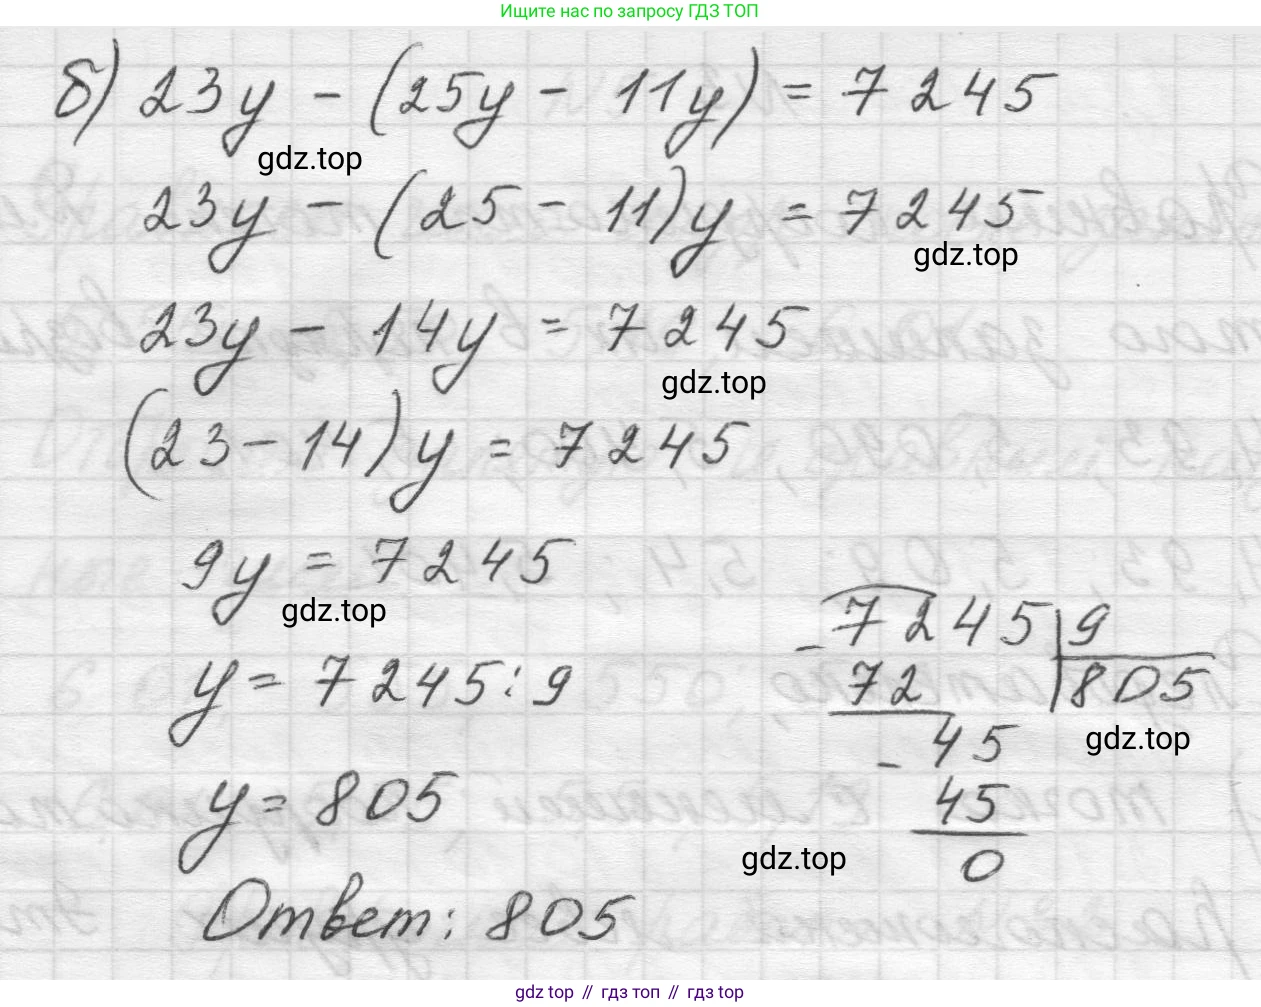 Ищите нас по запросу ГДЗ ТОП
б) 23у - (25у - 11у) = 7245
gdz.top
23у - (25 - 11)у = 7245
gdz.top
23у - 14у = 7245
gdz.top
(23 - 14)у = 7245
9у = 7245
gdz.top
у = 7245 : 9
у = 805
Ответ: 805
- 7245 | 9
72 | 805
gdz.top
- 45
45
gdz.top
0
gdz top // гдз топ // gdz top